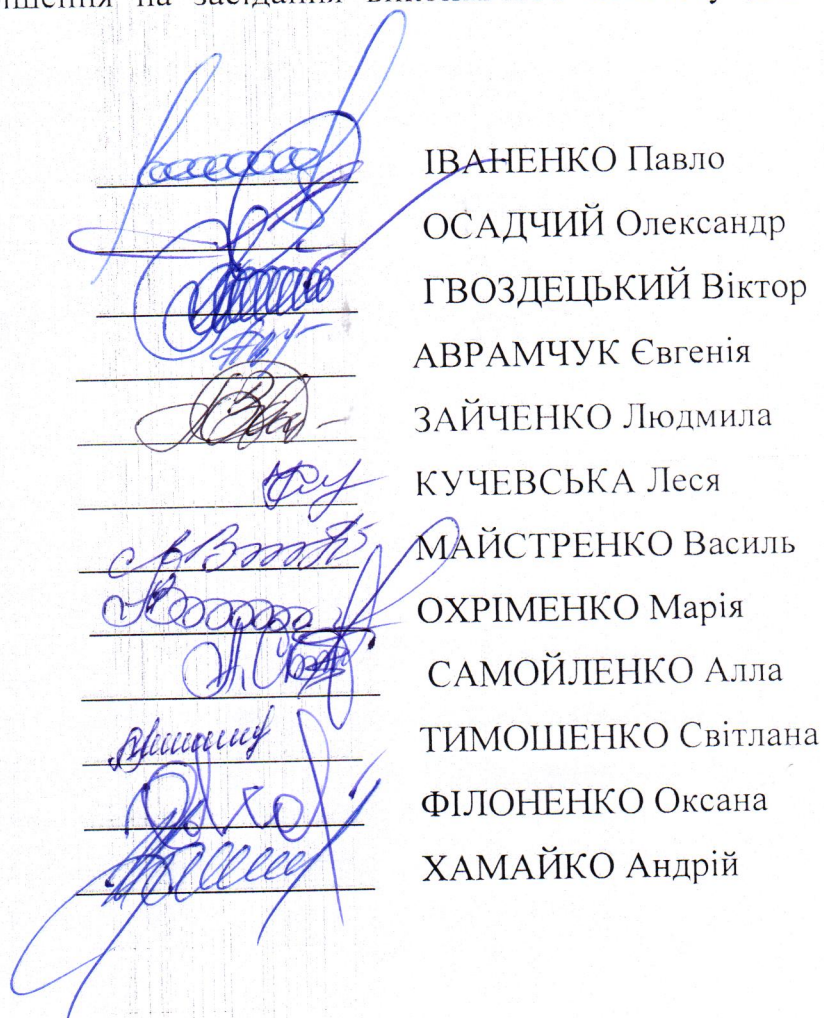 на засідання
ІВАНЕНКО Павло
ОСАДЧИЙ Олександр
ГВОЗДЕЦЬКИЙ Віктор
АВРАМЧУК Євгенія
ЗАЙЧЕНКО Людмила
КУЧЕВСЬКА Леся
МАЙСТРЕНКО Василь
ОХРІМЕНКО Марія
САМОЙЛЕНКО Алла
ТИМОШЕНКО Світлана
ФІЛОНЕНКО Оксана
ХАМАЙКО Андрій